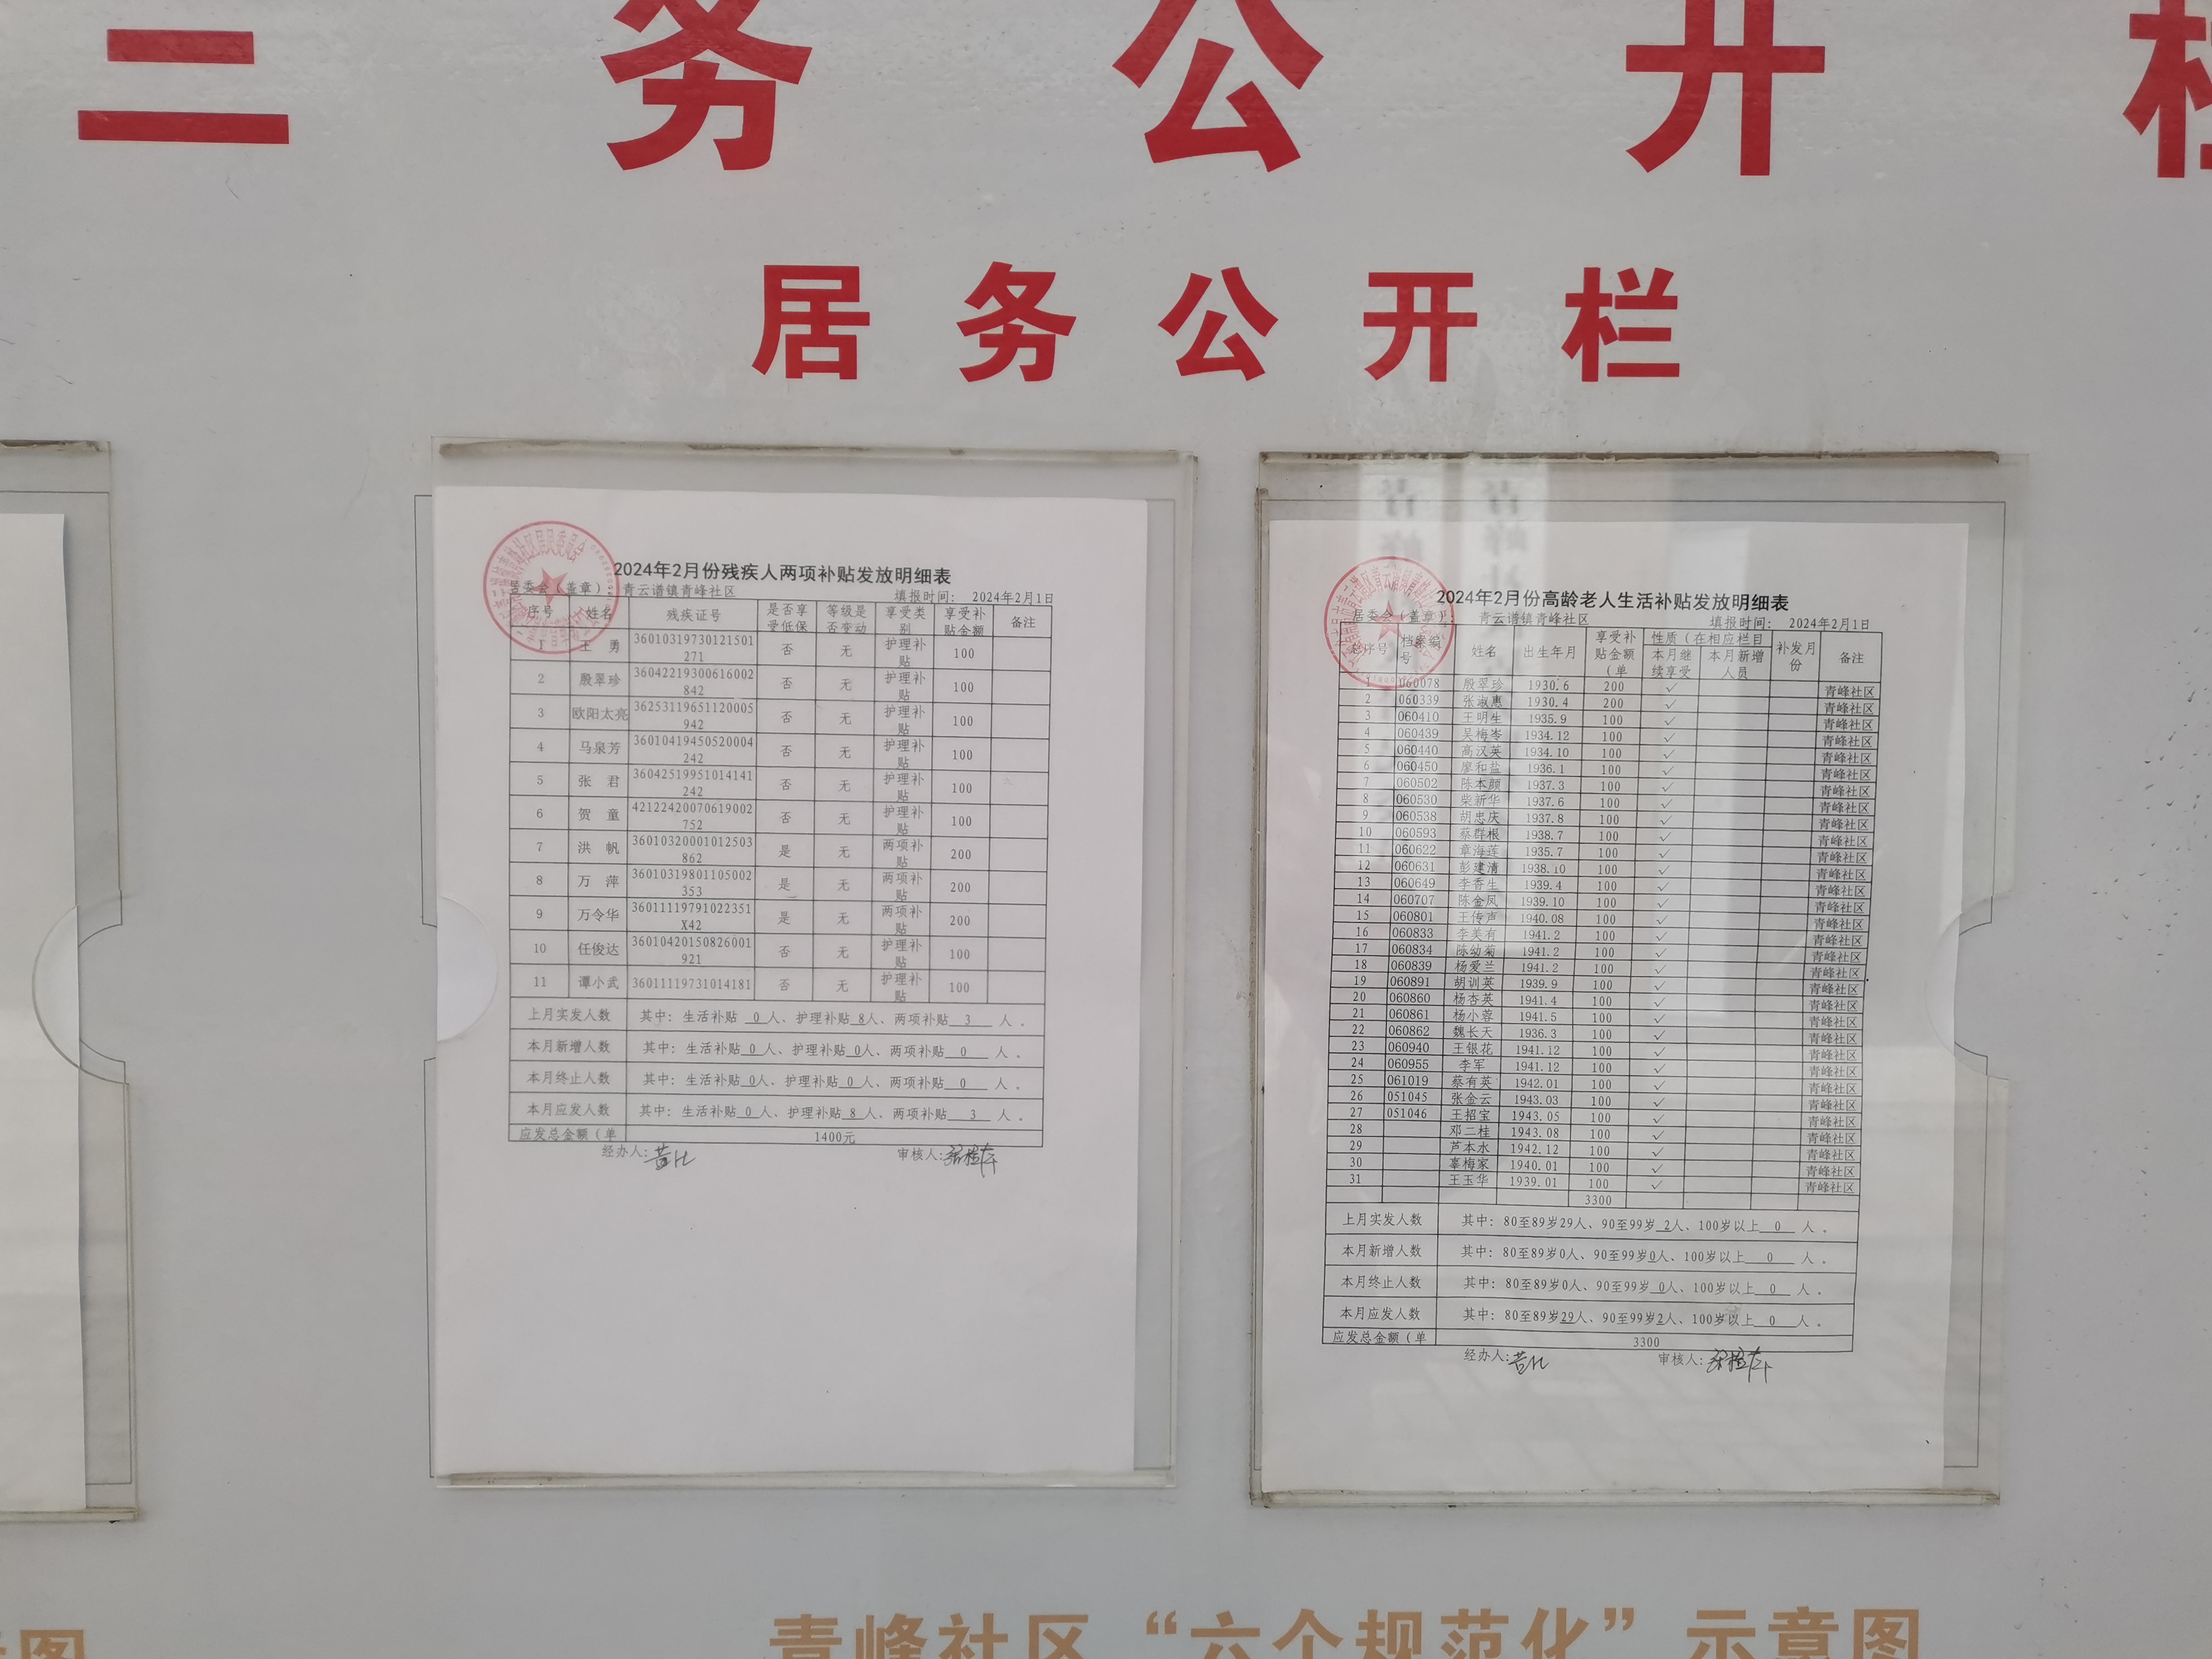 三务公开栏
居务公开栏
2024年2月份残疾人两项补贴发放明细表
居委会（盖章）：青云谱镇青峰社区 填报时间： 2024年2月1日
序号 姓名 残疾证号 是否享受低保 等级是否变动 享受类别 享受补贴金额 备注
1 王 勇 36010319730121501271 否 无 护理补贴 100
2 殷翠珍 36042219300616002842 否 无 护理补贴 100
3 欧阳太亮 36253119651120005942 否 无 护理补贴 100
4 马泉芳 36010419450520004242 否 无 护理补贴 100
5 张 君 36042519951014141242 否 无 护理补贴 100
6 贺 童 42122420070619002752 否 无 护理补贴 100
7 洪 帆 36010320001012503862 是 无 两项补贴 200
8 万 萍 36010319801105002353 是 无 两项补贴 200
9 万令华 36011119791022351X42 是 无 两项补贴 200
10 任俊达 36010420150826001921 否 无 护理补贴 100
11 谭小武 36011119731014181 否 无 护理补贴 100
上月实发人数 其中：生活补贴 0 人、护理补贴 8人、两项补贴 3 人 。
本月新增人数 其中：生活补贴 0 人、护理补贴 0人、两项补贴 0 人 。
本月终止人数 其中：生活补贴 0人、护理补贴 0 人、两项补贴 0 人 。
本月应发人数 其中：生活补贴 0 人、护理补贴 8 人、两项补贴 3 人 。
应发总金额（单 1400元
经办人： 审核人：
2024年2月份高龄老人生活补贴发放明细表
居委会（盖章）： 青云谱镇青峰社区 填报时间： 2024年2月1日
总序号 档案编号 姓名 出生年月 享受补贴金额（单 性质（在相应栏目 本月继续享受 本月新增人员 补发月份 备注
1 060078 殷翠珍 1930.6 200 ✓ 青峰社区
2 060339 张淑惠 1930.4 200 ✓ 青峰社区
3 060410 王明生 1935.9 100 ✓ 青峰社区
4 060439 吴梅岑 1934.12 100 ✓ 青峰社区
5 060440 高汉英 1934.10 100 ✓ 青峰社区
6 060450 廖和盐 1936.1 100 ✓ 青峰社区
7 060502 陈本颜 1937.3 100 ✓ 青峰社区
8 060530 柴新华 1937.6 100 ✓ 青峰社区
9 060538 胡忠庆 1937.8 100 ✓ 青峰社区
10 060593 蔡群根 1938.7 100 ✓ 青峰社区
11 060622 章海莲 1935.7 100 ✓ 青峰社区
12 060631 彭建清 1938.10 100 ✓ 青峰社区
13 060649 李香生 1939.4 100 ✓ 青峰社区
14 060707 陈金凤 1939.10 100 ✓ 青峰社区
15 060801 王传声 1940.08 100 ✓ 青峰社区
16 060833 李美有 1941.2 100 ✓ 青峰社区
17 060834 陈幼菊 1941.2 100 ✓ 青峰社区
18 060839 杨爱兰 1941.2 100 ✓ 青峰社区
19 060891 胡训英 1939.9 100 ✓ 青峰社区
20 060860 杨杏英 1941.4 100 ✓ 青峰社区
21 060861 杨小蓉 1941.5 100 ✓ 青峰社区
22 060862 魏长天 1936.3 100 ✓ 青峰社区
23 060940 王银花 1941.12 100 ✓ 青峰社区
24 060955 李军 1941.12 100 ✓ 青峰社区
25 061019 蔡有英 1942.01 100 ✓ 青峰社区
26 051045 张金云 1943.03 100 ✓ 青峰社区
27 051046 王招宝 1943.05 100 ✓ 青峰社区
28 邓二桂 1943.08 100 ✓ 青峰社区
29 芦本水 1942.12 100 ✓ 青峰社区
30 辜梅家 1940.01 100 ✓ 青峰社区
31 王玉华 1939.01 100 ✓ 青峰社区
3300
上月实发人数 其中：80至89岁29人、90至99岁 2人、100岁以上 0 人 。
本月新增人数 其中：80至89岁0人、90至99岁0人、100岁以上 0 人 。
本月终止人数 其中：80至89岁0人、90至99岁 0人、100岁以上 0 人 。
本月应发人数 其中：80至89岁29人、90至99岁2人、100岁以上 0 人 。
应发总金额（单 3300
经办人： 审核人：
图
青峰社区“六个规范化”示意图